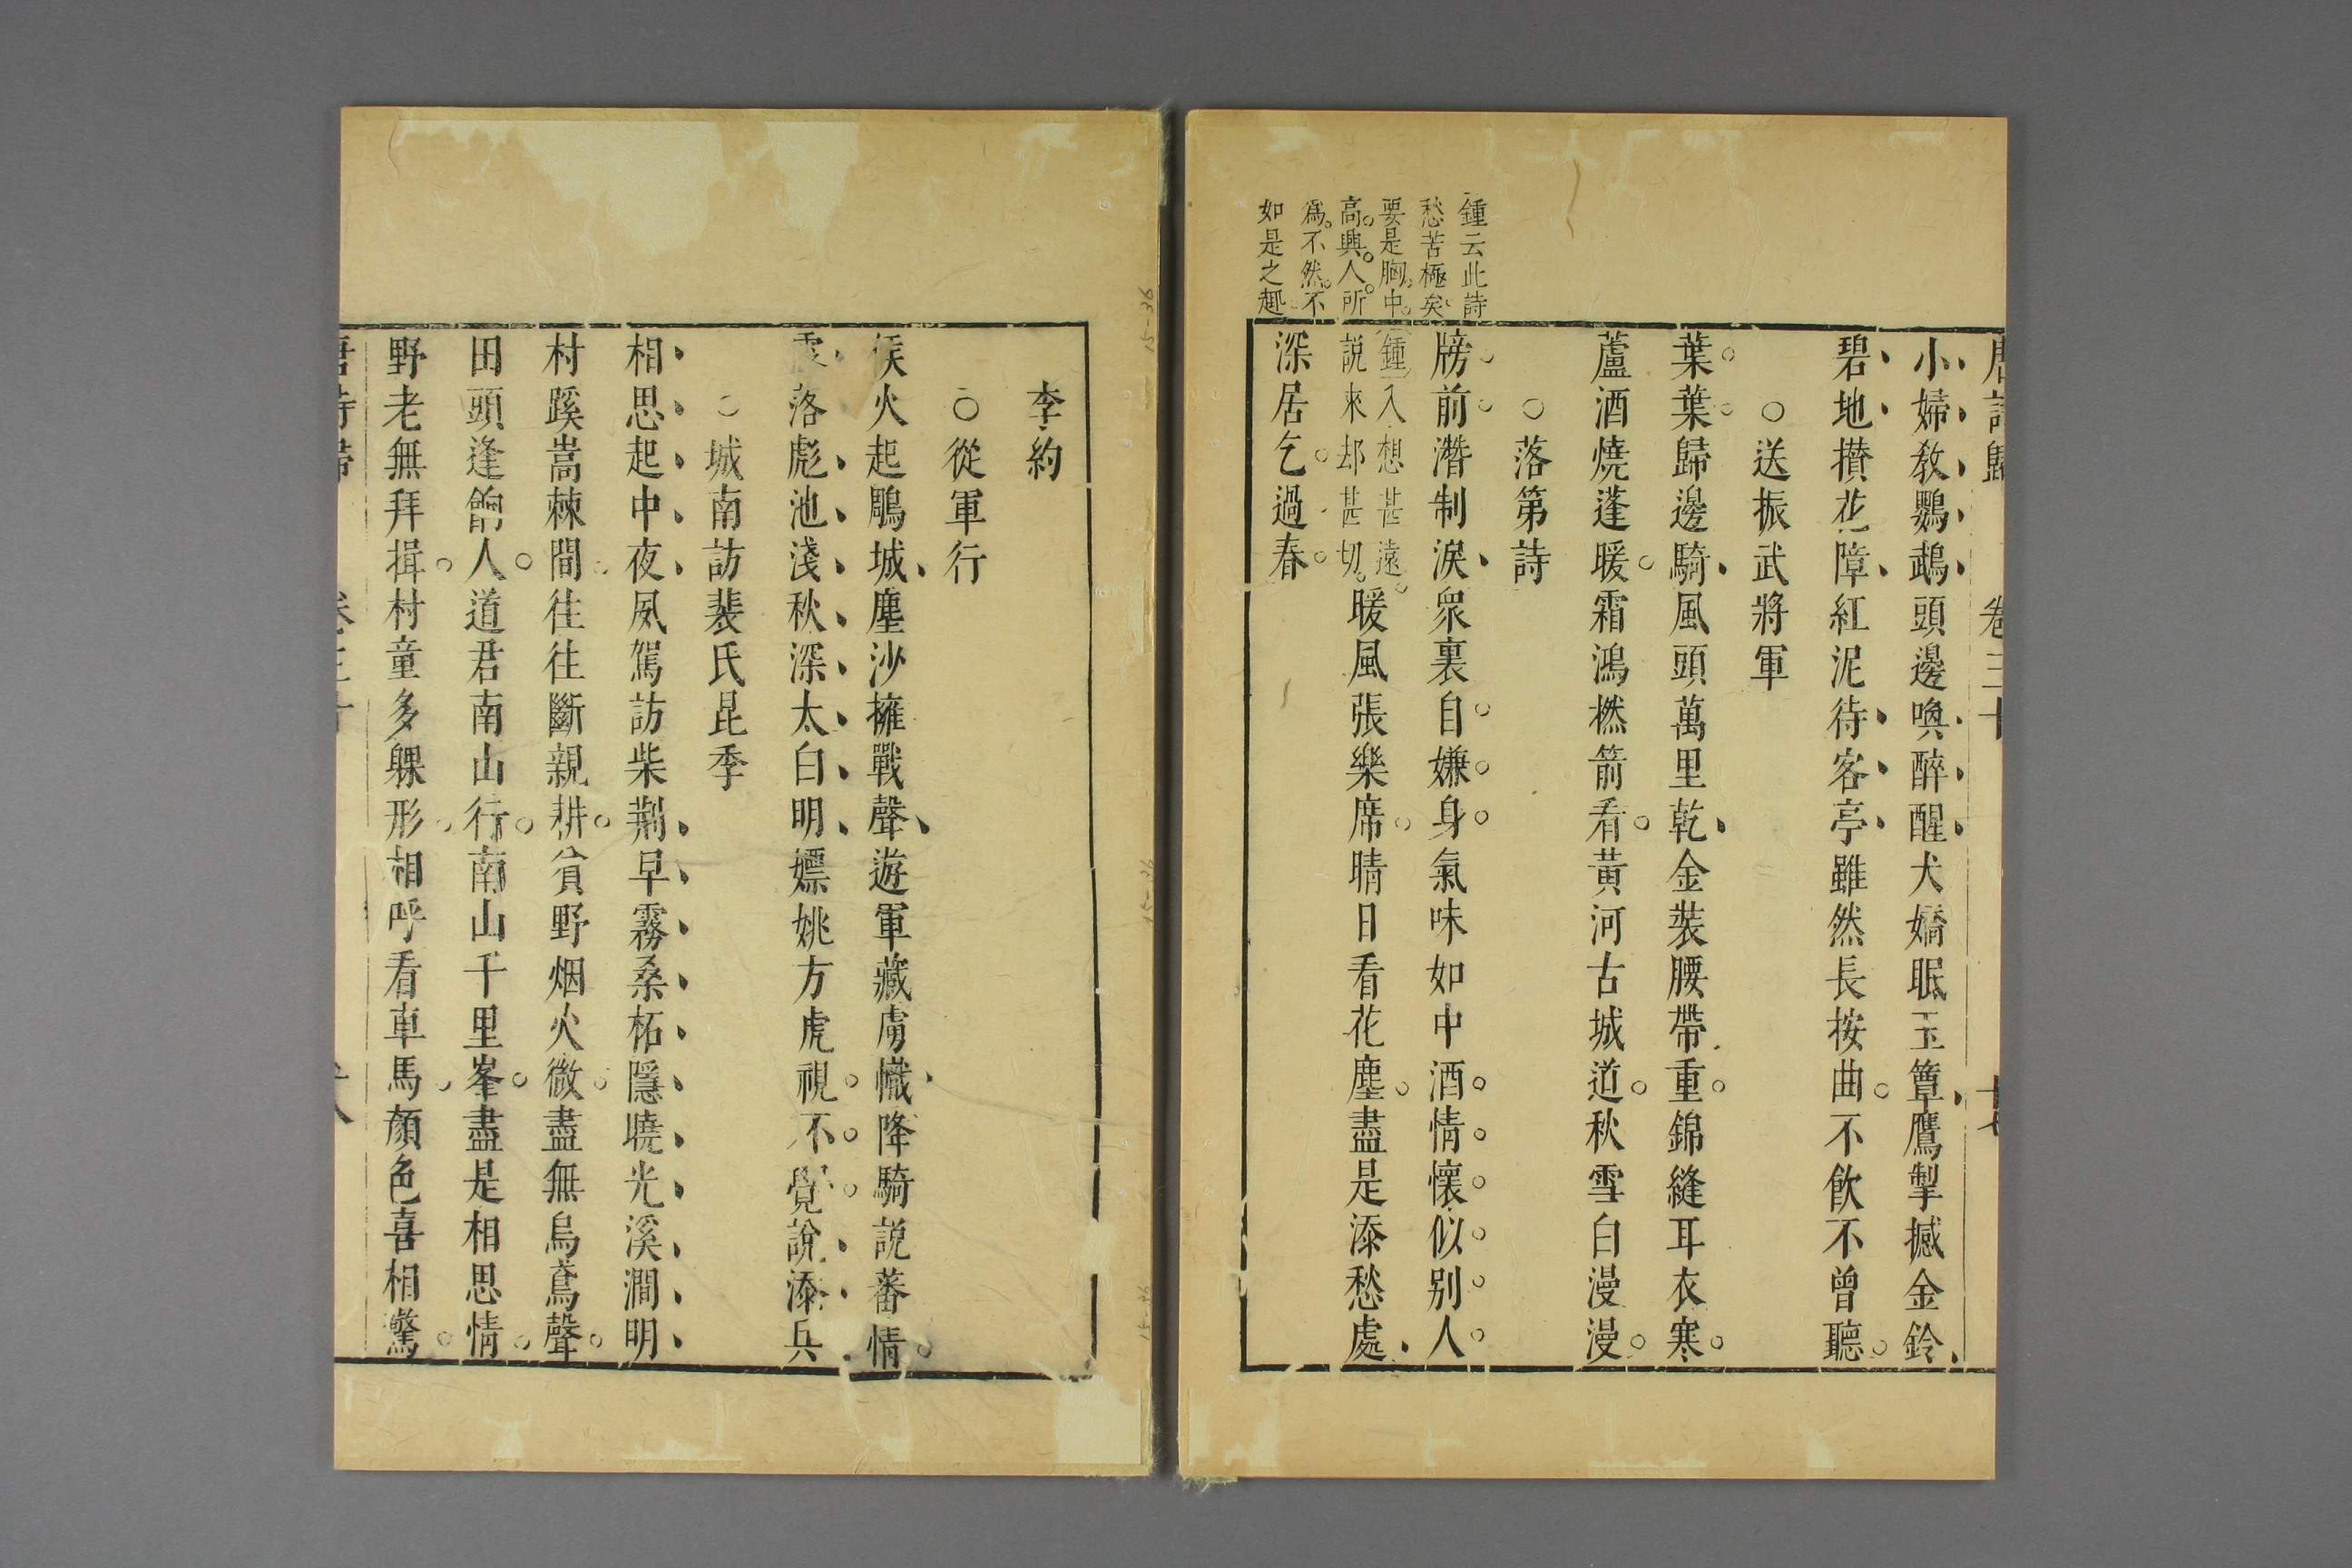 唐詩歸 卷三十 十七
小婦教鸚鵡頭邊喚醉醒犬嬌眠玉簟鷹掣撼金鈴
碧地攢花障紅泥待客亭雖然長按曲不飲不曾聽
○送振武將軍
葉葉歸邊騎風頭萬里乾金裝腰帶重錦縫耳衣寒
蘆酒燒蓬暖霜鴻撚箭看黃河古城道秋雪白漫漫
○落第詩
鍾云此詩
愁苦極矣
要是胸中
高興人所
爲不然不
如是之趣
牓前潛制淚衆裏自嫌身氣味如中酒情懷似别人
鍾入想甚遠
說來却甚切
暖風張樂席晴日看花塵盡是添愁處
深居乞過春
李約
○從軍行
候火起鵰城塵沙擁戰聲遊軍藏虜幟降騎説蕃情
霜落滮池淺秋深太白明嫖姚方虎視不覺說添兵
○城南訪裴氏昆季
相思起中夜夙駕訪柴荆早霧桑柘隱曉光溪澗明
村蹊蒿棘間往往斷親耕貧野烟火微盡無烏鳶聲
田頭逢餉人道君南山行南山千里峯盡是相思情
野老無拜揖村童多躶形相呼看車馬顔色喜相驚
唐詩歸 卷三十 十八